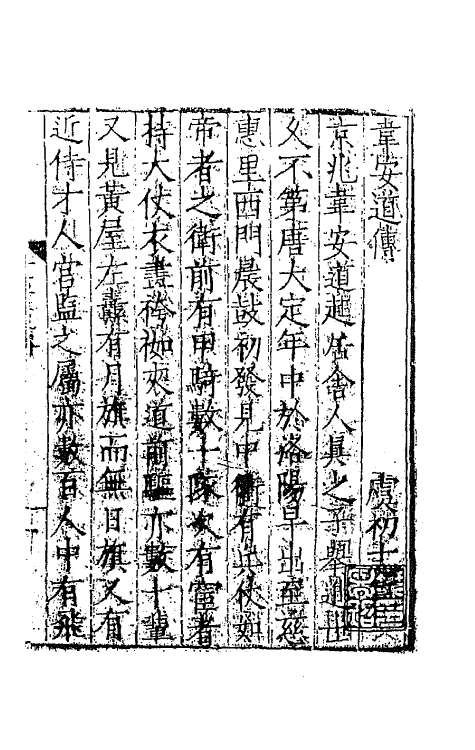 韋安道傳
虞初士
京兆韋安道起居舍人真之子舉進士
久不第唐大定年中於洛陽早出至慈
惠里西門晨鼓初發見中衢有兵仗如
帝者之衛前有甲騎數十隊次有宦者
持大仗衣畫袴袽夾道前驅亦數十輩
又見黃屋左纛有月旗而無日旗又有
近侍才人宮監之屬亦數百人中有飛